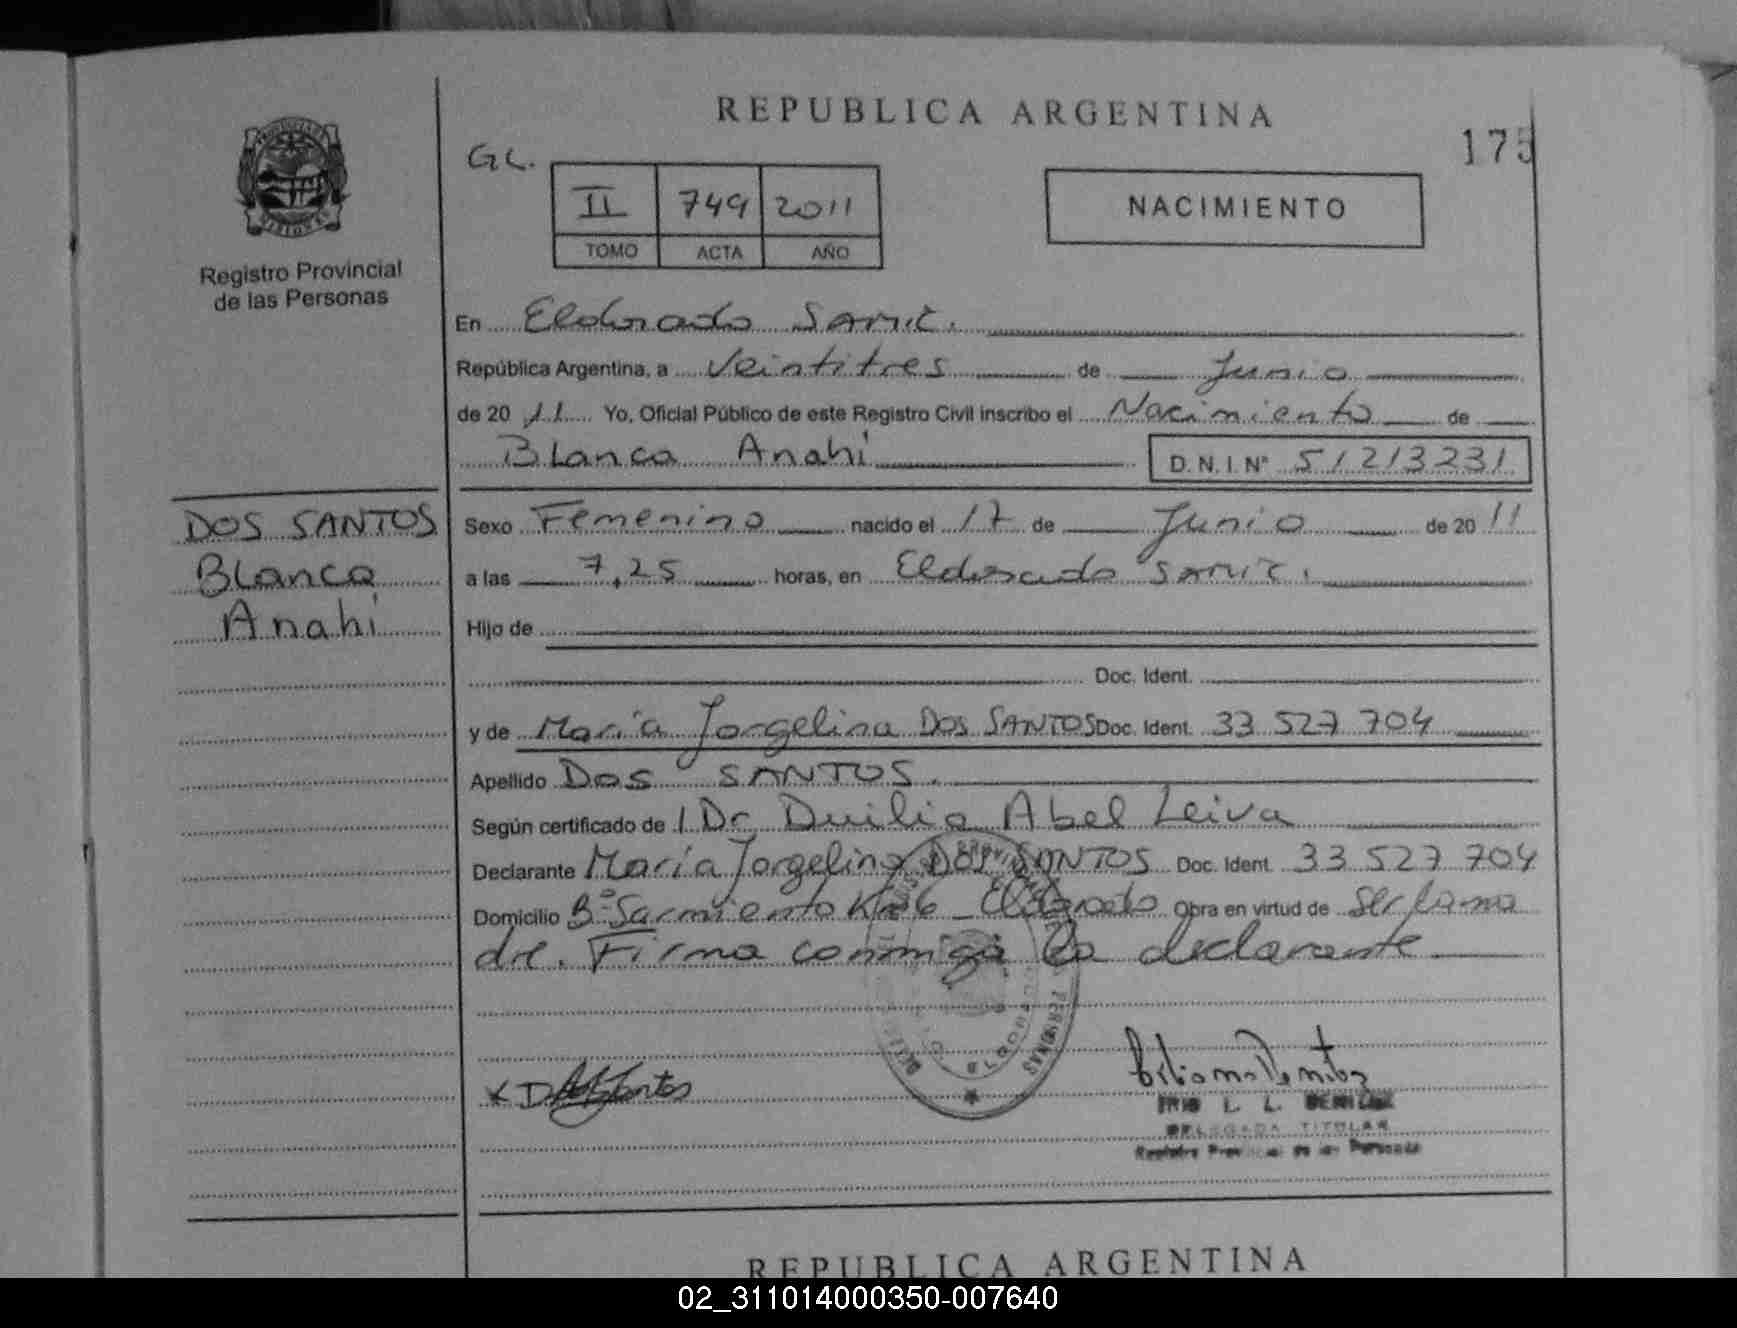 REPUBLICA ARGENTINA
175
GL.
II 749 2011
TOMO ACTA AÑO
NACIMIENTO
Registro Provincial
de las Personas
En Eldorado SAMIC.
República Argentina, a Veintitres de Junio
de 20 11 Yo, Oficial Público de este Registro Civil inscribo el Nacimiento de
Blanca Anahi D.N.I.Nº 51213231
DOS SANTOS
Blanca
Anahi
Sexo Femenino nacido el 17 de Junio de 20 11
a las 7,25 horas, en Eldorado SAMIC.
Hijo de
Doc. Ident.
y de María Jorgelina DOS SANTOS Doc. Ident. 33 527 704
Apellido DOS SANTOS.
Según certificado de 1 Dr Duilio Abel Leiva
Declarante María Jorgelina DOS SANTOS Doc. Ident. 33 527 704
Domicilio Bº Sarmiento Km 6 _ Eldorado Obra en virtud de ser la ma
dre. Firma conmigo la declarante
x D Santos
DELEGADA TITULAR
Registro Provincial de las Personas
REPUBLICA ARGENTINA
02_311014000350-007640